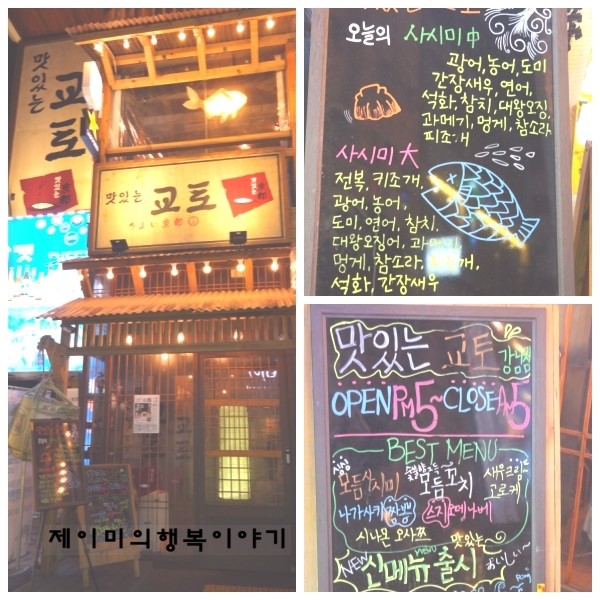 맛있는
교토
맛있는 교토
제이미의행복이야기
오늘의 사시미 中
광어, 농어, 도미
간장새우, 연어,
석화, 참치, 대왕오징,
과메기, 멍게, 참소라
피조개
사시미 大
전복, 키조개,
광어, 농어,
도미, 연어, 참치,
대왕오징어,
멍게, 참소라,
석화, 간장새우
맛있는 교토
강남점
OPEN PM5~CLOSE AM5
BEST MENU
모듬사시미
숯불향 그득
모듬꼬치
새우크림
고로케
나가사키 짬뽕
스지오뎅나베
시나몬 오사쯔
맛있는
NEW 신메뉴 출시
おいしい~